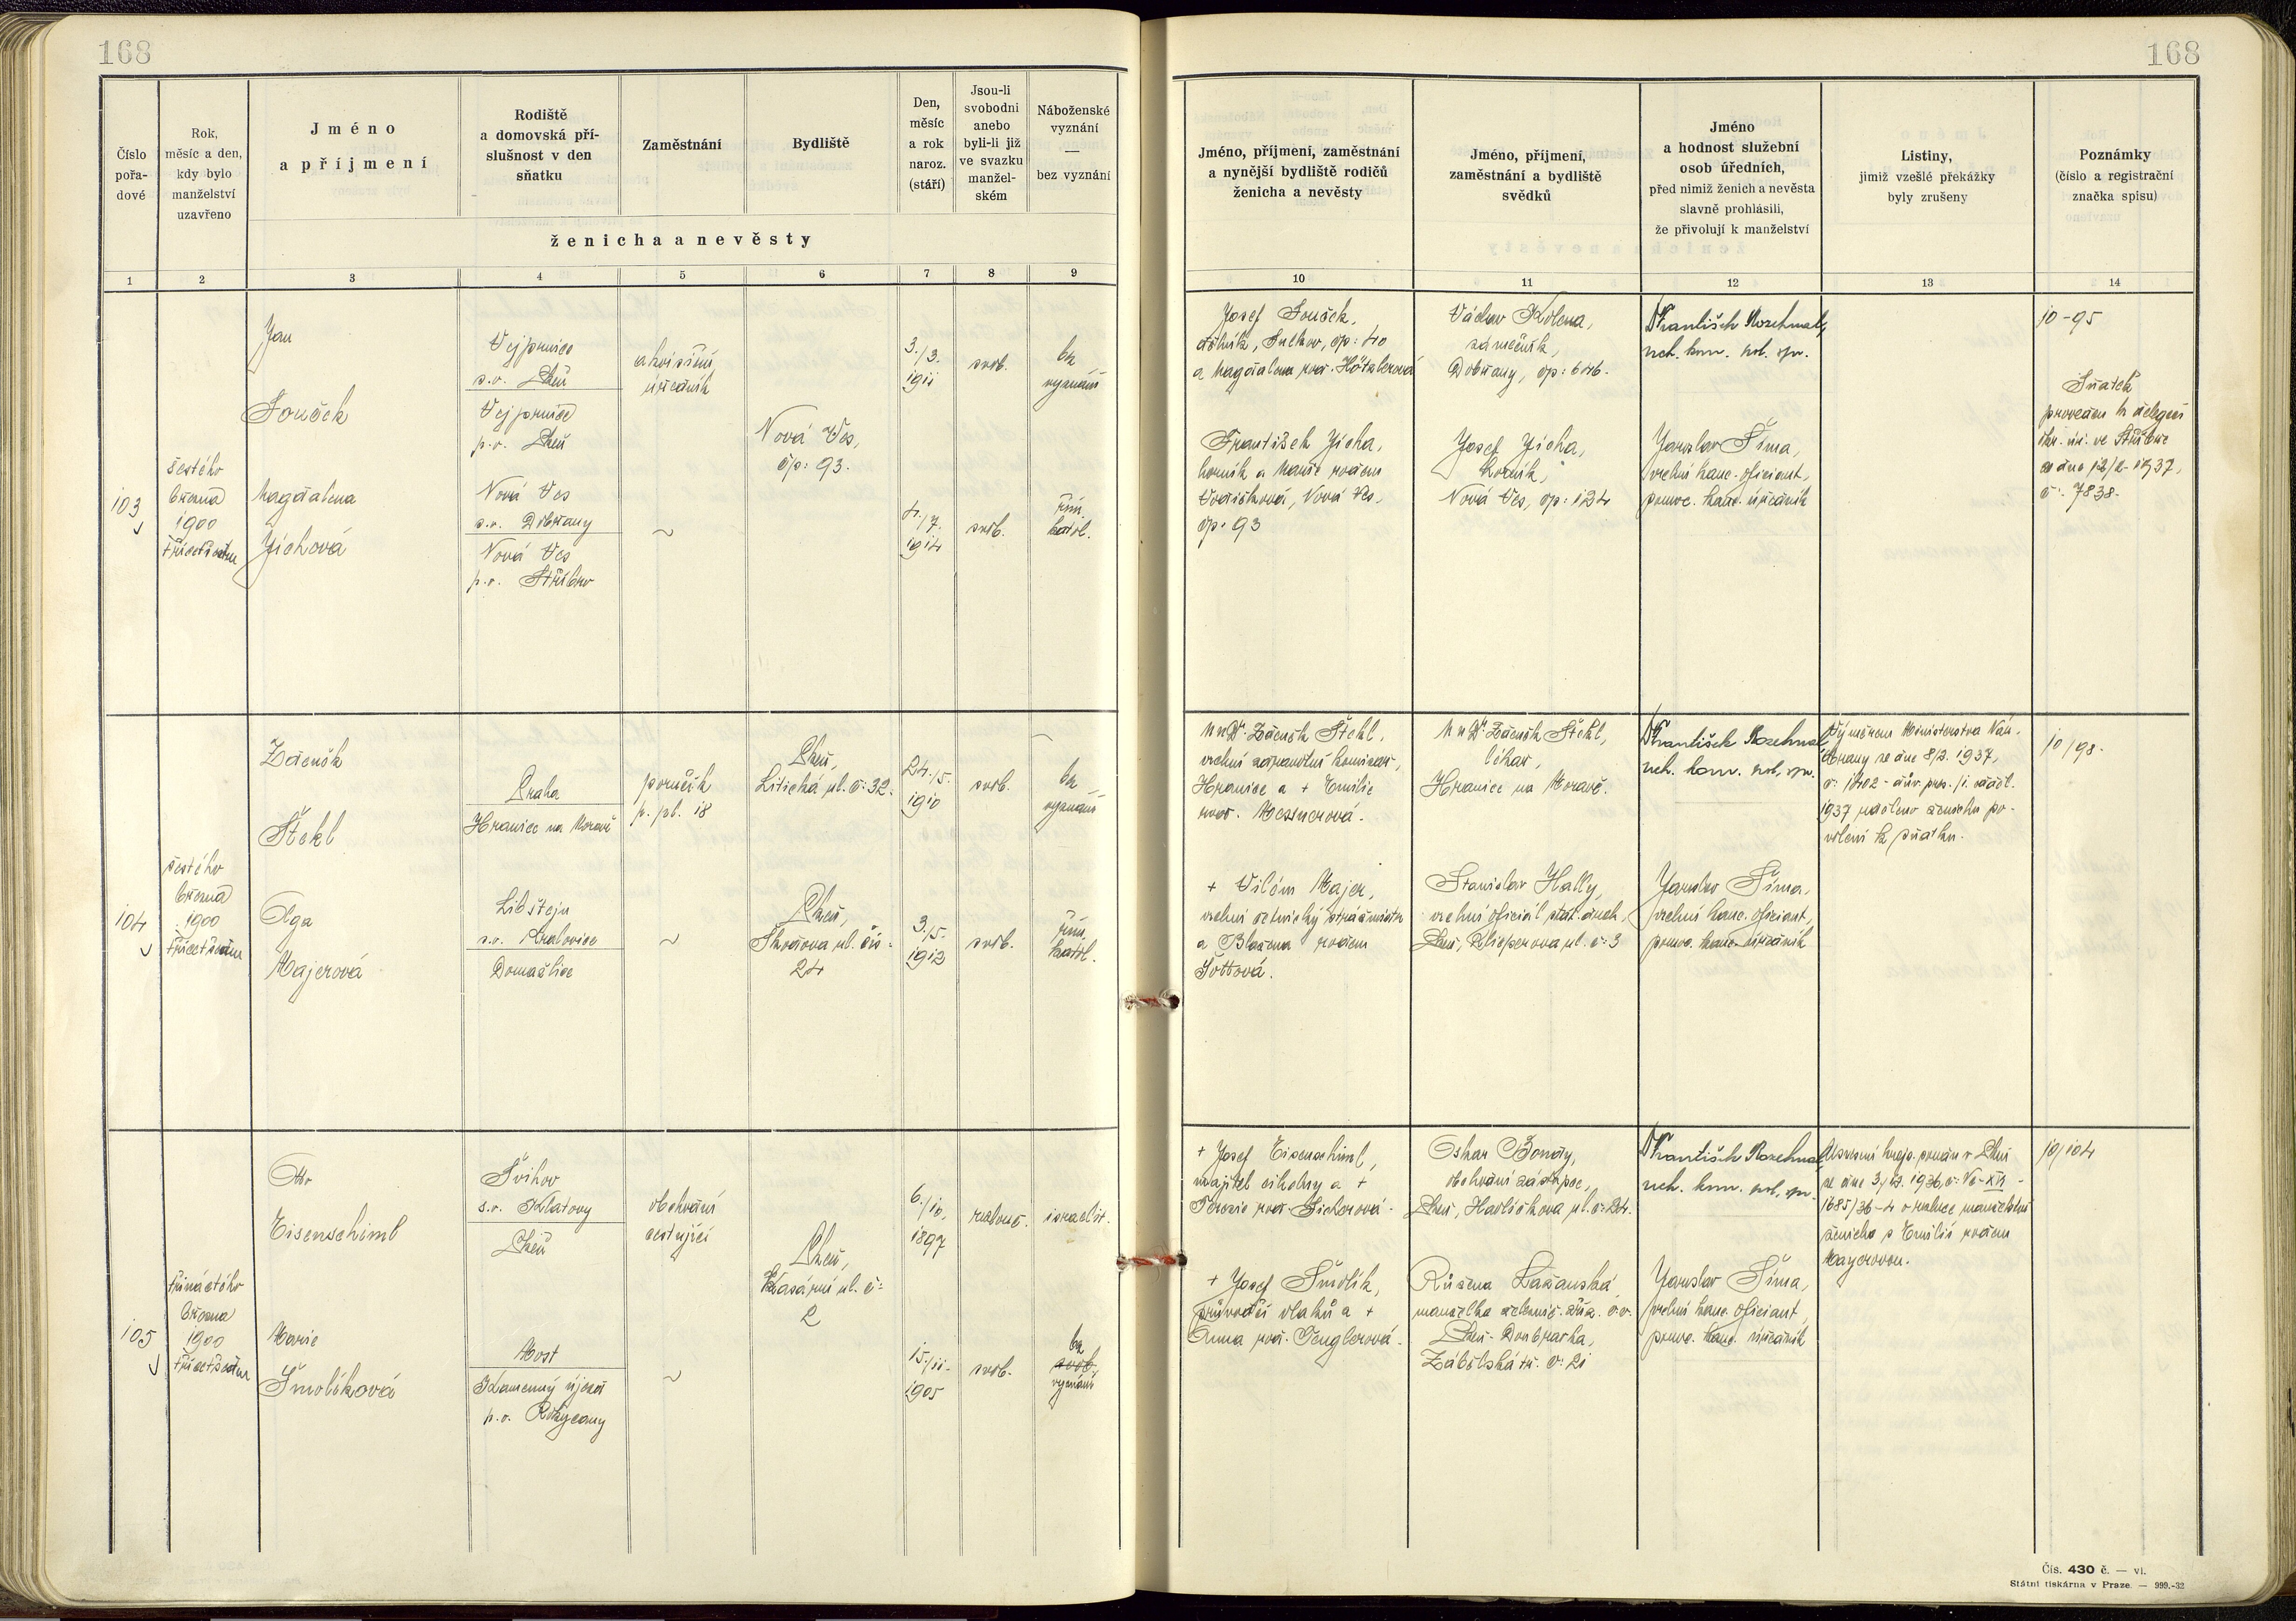 168
168
Číslo
pořa-
dové
Rok,
měsíc a den,
kdy bylo
manželství
uzavřeno
Jméno
a příjmení
Rodiště
a domovská pří-
slušnost v den
sňatku
Zaměstnání
Bydliště
Den,
měsíc
a rok
naroz.
(stáří)
Jsou-li
svobodni
anebo
byli-li již
ve svazku
manžel-
ském
Náboženské
vyznání
—
bez vyznání
ženicha a nevěsty
Jméno, příjmení, zaměstnání
a nynější bydliště rodičů
ženicha a nevěsty
Jméno, příjmení,
zaměstnání a bydliště
svědků
Jméno
a hodnost služební
osob úředních,
před nimiž ženich a nevěsta
slavně prohlásili,
že přivolují k manželství
Listiny,
jimiž vzešlé překážky
byly zrušeny
Poznámky
(číslo a registrační
značka spisu)
1 2 3 4 5 6 7 8 9
10 11 12 13 14
103
šestého
března
1900
třicetsedm
Jan
Souček
Magdalena
Jíchová
Vejprnice
s.o. Plzeň
Vejprnice
p.o. Plzeň
Nová Ves
s.o. Dobřany
Nová Ves
p.o. Stříbro
akvisiční
úředník
~
Nová Ves,
čp: 93.
3./3.
1911
4./7.
1914
svob.
svob.
bez
vyznání
řím.
katol.
Josef Souček,
dělník, Sulkov, čp: 40
a Magdalena roz. Hötzlerová
František Jícha,
horník a Marie rozem
Nová Ves,
čp. 93
Václav Kolena,
zámečník,
Dobřany, čp: 646.
Josef Jícha,
horník,
Nová Ves, čp: 124
František Rozehnal,
rch. kom. pol. spr.
Jaroslav Šíma,
vrchní kanc. oficiant,
pomoc. kanc. úředník
10-95
Sňatek
proveden z delegací
okr. úř. ve Stříbře
ze dne 12/2 1937,
č: 7838.
104
šestého
března
1900
třicetsedm
Zdeněk
Štekl
Olga
Majerová
Praha
Hranice na Moravě
Libštejn
s.o. Kralovice
Domažlice
poručík
p. pl. 18
~
Plzeň,
Litická ul. č: 32.
Plzeň,
Škodova ul. čís:
24
24./5.
1910
3./5.
1913
svob.
svob.
bez
vyznání
řím.
katol.
MUDr. Zdeněk Štekl,
vrchní zdravotní komisař,
Hranice a + Emilie
roz. Messnerová.
+ Vilém Majer,
vrchní četnický strážmistr
a Blažena rozem
Šottová.
MUDr. Zdeněk Štekl,
lékař,
Hranice na Moravě.
Stanislav Hally,
vrchní oficiál stát. drah,
Plzeň, Klicperova ul. č: 3
František Rozehnal,
rch. kom. pol. spr.
Jaroslav Šíma,
vrchní kanc. oficiant,
pomoc. kanc. úředník
Výměrem Ministerstva Nár.
obrany ze dne 8/2. 1937,
1937 uděleno ženichu po-
volení k sňatku.
10/98.
105
třináctého
března
1900
třicetsedm
Otto
Eisenschiml
Marie
Šmolíková
Švihov
s.o. Klatovy
Plzeň
Most
Kamenný újezd
p.o. Rokycany
obchodní
cestující
~
Plzeň,
Kasární ul. č:
2
6./10.
1897
15./11.
1905
rozlouč.
svob.
israelit.
bez
svob.
vyznání
+ Josef Eisenschiml,
majitel cihelny a +
Terezie roz. Sicherová.
+ Josef Šmolík,
průvodčí vlaků a +
Anna roz. Tenglerová.
Oskar Bondy,
obchodní zástupce,
Plzeň, Havlíčkova ul. č: 24.
Růžena Lažanská,
manželka železnič. zříz. v.v.
Plzeň-Doubravka,
Zábělská tř. č: 21
František Rozehnal,
rch. kom. pol. spr.
Jaroslav Šíma,
vrchní kanc. oficiant,
pomoc. kanc. úředník
1685/36-4 o rozluce manželství
ženicha s Emilií rozem
Mayerovou.
10/104
Čís. 430 č. — vi.
Státní tiskárna v Praze. — 999.-32